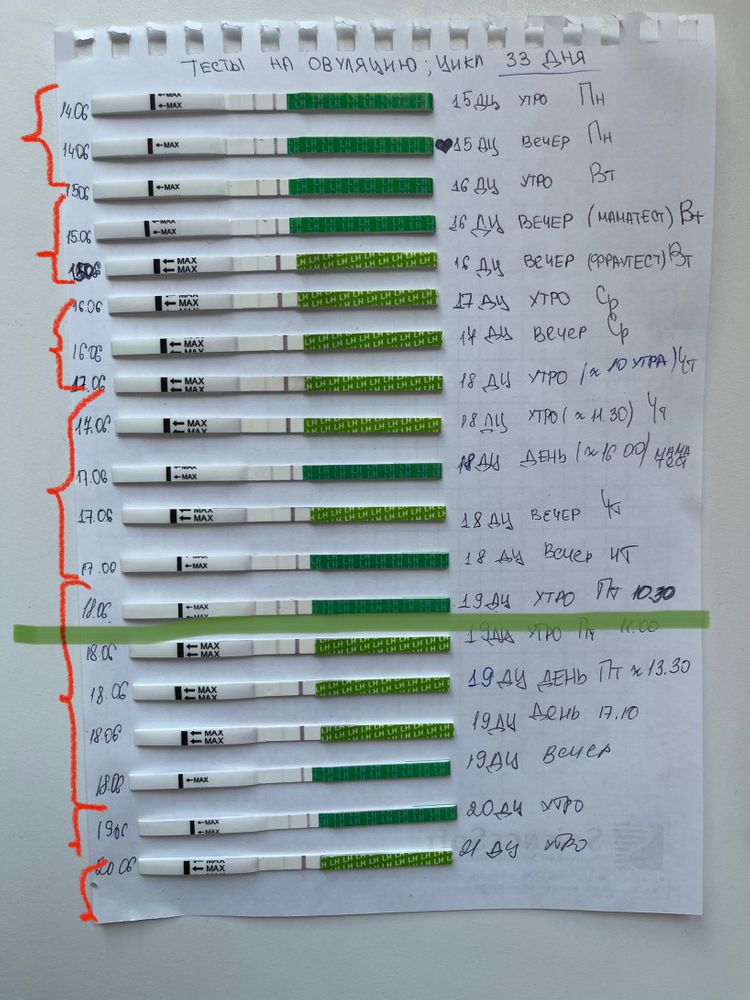 ТЕСТЫ НА ОВУЛЯЦИЮ; ЦИКЛ 33 ДНЯ
14.06 MAX ←MAX 15 ДЦ УТРО ПН
14.06 ←MAX 15 ДЦ ВЕЧЕР ПН
15.06 ←MAX 16 ДЦ УТРО ВТ
15.06 ←MAX 16 ДЦ ВЕЧЕР (МАМАТЕСТ) ВТ
15.06 ←MAX ←MAX 16 ДЦ ВЕЧЕР (ФРАУТЕСТ) ВТ
16.06 ←MAX ←MAX 17 ДЦ УТРО СР
16.06 ←MAX ←MAX 17 ДЦ ВЕЧЕР СР
17.06 ←MAX ←MAX 18 ДЦ УТРО (≈ 10 УТРА) ЧТ
17.06 ←MAX ←MAX 18 ДЦ УТРО (≈ 11.30) ЧТ
17.06 ←MAX 18 ДЦ ДЕНЬ (≈ 16 00) МАМА ТЕСТ
17.06 ←MAX ←MAX 18 ДЦ ВЕЧЕР ЧТ
17.06 ←MAX 18 ДЦ ВЕЧЕР ЧТ
18.06 ←MAX 19 ДЦ УТРО ПТ 10.30
18.06 ←MAX ←MAX 19 ДЦ УТРО ПТ 11.00
18.06 ←MAX ←MAX 19 ДЦ ДЕНЬ ПТ ≈ 13.30
18.06 ←MAX ←MAX 19 ДЦ ДЕНЬ 17.10
18.06 ←MAX 19 ДЦ ВЕЧЕР
19.06 ←MAX 20 ДЦ УТРО
20.06 ←MAX ←MAX 21 ДЦ УТРО